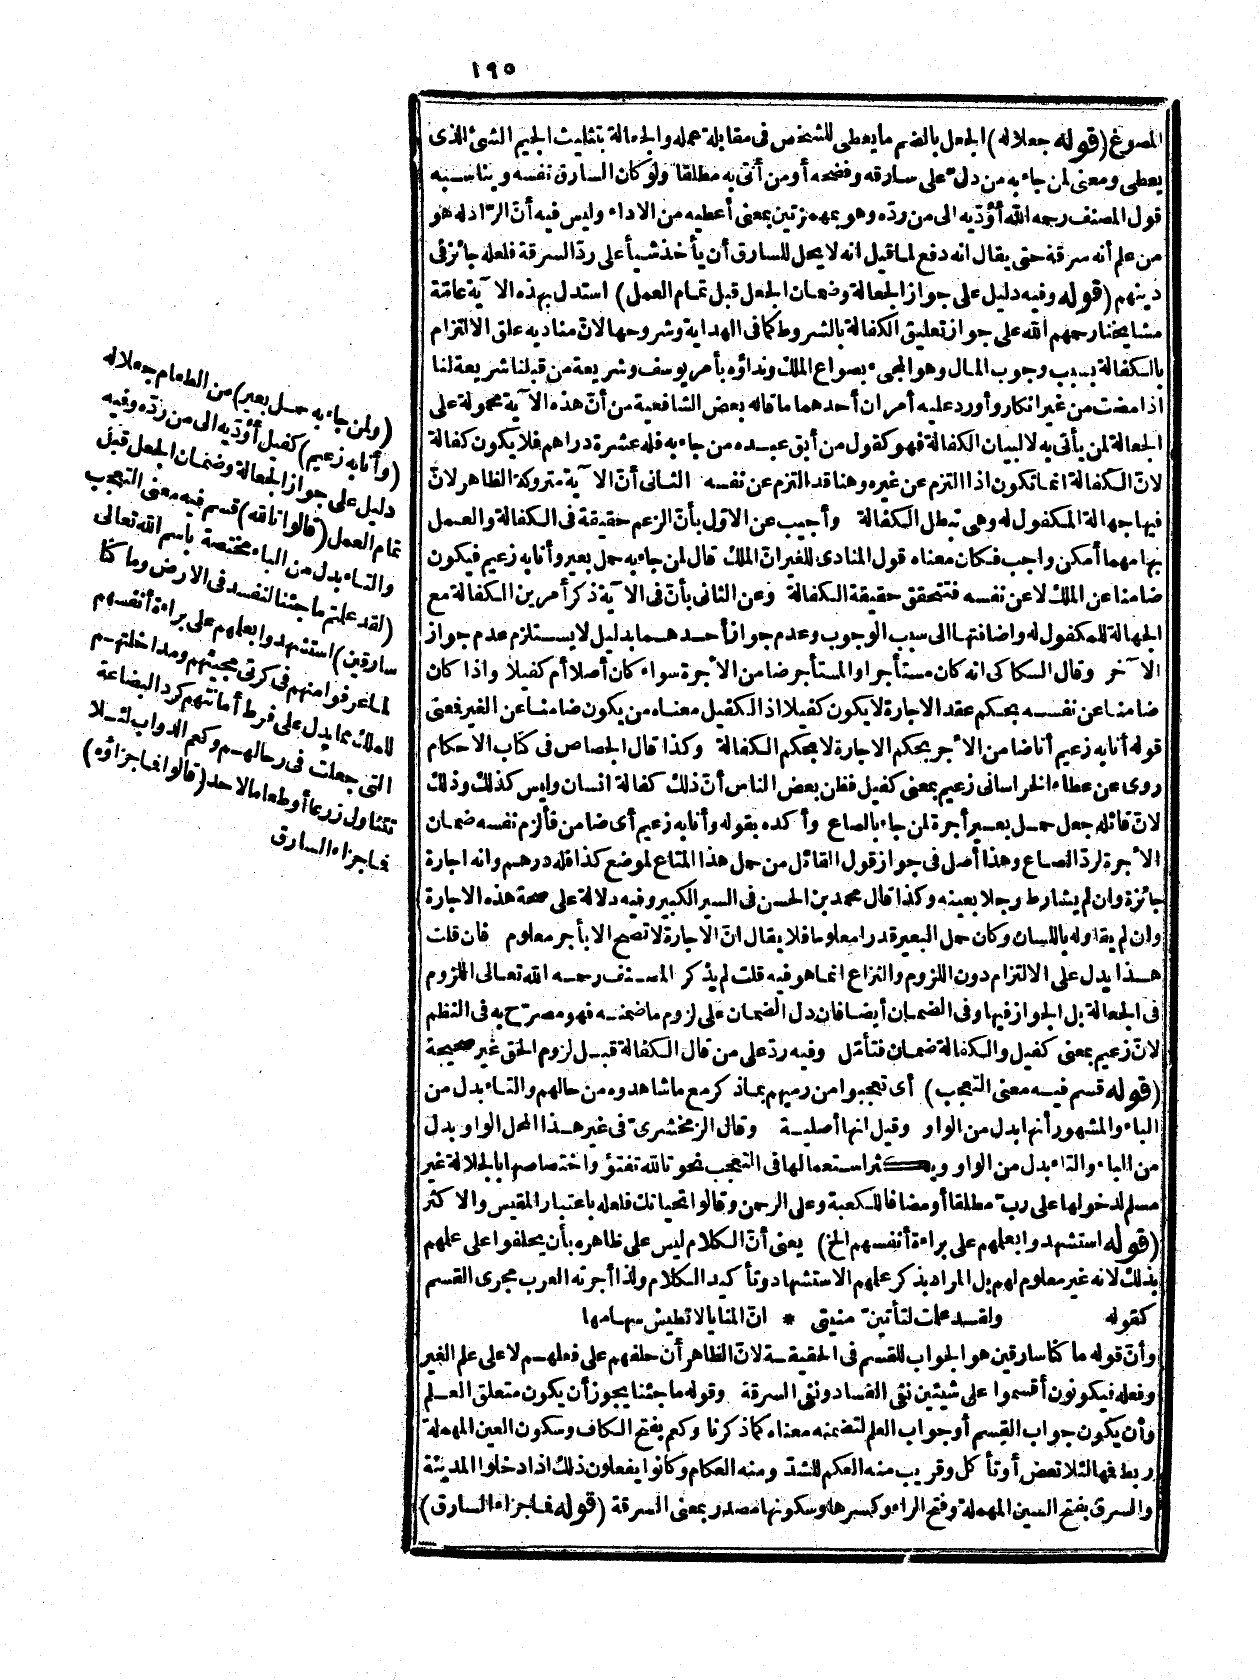 ١٩٥
المصوغ (قوله جعلا له) الجعل بالضم ما يعطى للشخص فى مقابلة عمله والجعالة بتثليث الجيم الشئ الذى
يعطى ومعنى لمن جاء به من دل على سارقه وفضحه أو من أتى به مطلقا ولو كان السارق نفسه ويناسبه
قول المصنف رحمه الله أؤدّيه الى من ردّه وهو بهمزتين بمعنى أعطيه من الاداء وليس فيه أنّ الرّاد له هو
من علم أنه سرقة حتى يقال انه دفع لما قيل انه لا يحل للسارق أن يأخذ شيأ على ردّ السرقة فلعله جائز فى
دينهم (قوله وفيه دليل على جواز الجعالة وضمان الجعل قبل تمام العمل) استدل بهذه الآية عامّة
مشايخنا رحمهم الله على جواز تعليق الكفالة بالشروط كما فى الهداية وشروحها لانّ مناديه علق الالتزام
بالكفالة بسبب وجوب المال وهو المجىء بصواع الملك ونداؤه بأمر يوسف وشريعة من قبلنا شريعة لنا
اذا مضت من غير انكار وأورد عليه أمران أحدهما ما قاله بعض الشافعية من أنّ هذه الآية محمولة على
الجعالة لمن يأتى به لا لبيان الكفالة فهو كقول من أبق عبده من جاء به فله عشرة دراهم فلا يكون كفالة
لانّ الكفالة انما تكون اذا التزم عن غيره وهنا قد التزم عن نفسه الثانى أنّ الآية متروكة الظاهر لانّ
فيها جهالة المكفول له وهى تبطل الكفالة وأجيب عن الاوّل بأنّ الزعم حقيقة فى الكفالة والعمل
بها مهما أمكن واجب فكان معناه قول المنادى للغير انّ الملك قال لمن جاء به حمل بعير وأنا به زعيم فيكون
ضامنا عن الملك لا عن نفسه فتتحقق حقيقة الكفالة وعن الثانى بأنّ فى الآية ذكر أمرين الكفالة مع
الجهالة للمكفول له واضافتها الى سبب الوجوب وعدم جواز أحدهما بدليل لا يستلزم عدم جواز
الآخر وقال السكاكى انه كان مستأجرا والمستأجر ضامن الأجرة سواء كان أصلا أم كفيلا واذا كان
ضامنا عن نفسه بحكم عقد الاجارة لا يكون كفيلا اذ الكفيل معناه من يكون ضامنا عن الغير فمعنى
قوله أنا به زعيم أنا ضامن الأجر بحكم الاجارة لا بحكم الكفالة وكذا قال الجصاص فى كتاب الاحكام
روى عن عطاء الخراسانى زعيم بمعنى كفيل فظن بعض الناس أنّ ذلك كفالة انسان وليس كذلك وذلك
لانّ قائله جعل حمل بعير أجرة لمن جاء بالصاع وأكده بقوله وأنا به زعيم أى ضامن فألزم نفسه ضمان
الأجرة لردّ الصاع وهذا أصل فى جواز قول القائل من حمل هذا المتاع لموضع كذا فله درهم وانه اجارة
جائزة وان لم يشارط رجلا بعينه وكذا قال محمد بن الحسن فى السير الكبير وفيه دلالة على صحة هذه الاجارة
وان لم يقاوله باللسان وكان حمل البعير قدرا معلوما فلا يقال انّ الاجارة لا تصح الا بأجر معلوم فان قلت
هذا يدل على الالتزام دون اللزوم والنزاع انما هو فيه قلت لم يذكر المصنف رحمه الله تعالى اللزوم
فى الجعالة بل الجواز فيها وفى الضمان أيضا فان دل الضمان على لزوم ما ضمنه فهو مصرّح به فى النظم
لانّ زعيم بمعنى كفيل والكفالة ضمان فتأمّل وفيه ردّ على من قال الكفالة قبل لزوم الحق غير صحيحة
(قوله قسم فيه معنى التعجب) أى تعجبوا من رميهم بما ذكر مع ما شاهدوه من حالهم والتاء بدل من
الباء والمشهور أنها بدل من الواو وقيل انها أصلية وقال الزمخشرىّ فى غير هذا المحل الواو بدل
من الباء والتاء بدل من الواو ويكثر استعمالها فى التعجب نحو تالله تفتؤ واختصاصها بالجلالة غير
مسلم لدخولها على رب مطلقا أو مضافا للكعبة وعلى الرحمن وقالوا تحياتك فلعله باعتبار المقيس والاكثر
(قوله استشهدوا بعلهم على براءة أنفسهم الخ) يعنى أنّ الكلام ليس على ظاهره بأن يحلفوا على علمهم
بذلك لانه غير معلوم لهم بل المراد بذكر علمهم الاستشهاد وتأكيد الكلام ولذا أجرته العرب مجرى القسم
كقوله ولقد علمت لتأتينّ منيتى * انّ المنايا لا تطيش سهامها
وأنّ قوله ما كنّا سارقين هو الجواب للقسم فى الحقيقة لانّ الظاهر أن حلفهم على فعلهم لا على علم الغير
وفعله فيكونون أقسموا على شيئين نفى الفساد ونفى السرقة وقوله ما جئنا يجوز أن يكون متعلق العلم
وأن يكون جواب القسم أو جواب العلم لتضمنه معناه كما ذكرنا وكم بفتح الكاف وسكون العين المهملة
ربط فمها لئلا تعض أو تأكل وقريب منه العكم للشدّ ومنه العكام وكانوا يفعلون ذلك اذا دخلوا المدينة
والسرق بفتح السين المهملة وفتح الراء وكسرها وسكونها مصدر بمعنى السرقة (قوله فما جزاء السارق)
(ولمن جاء به حمل بعير) من الطعام جعلا له
(وأنا به زعيم) كفيل أؤدّيه الى من ردّه وفيه
دليل على جواز الجعالة وضمان الجعل قبل
تمام العمل (قالوا تالله) قسم فيه معنى التعجب
والتاء بدل من الباء مختصة باسم الله تعالى
(لقد علمتم ما جئنا لنفسد فى الارض وما كنّا
سارقين) استشهدوا بعلهم على براءة أنفسهم
لما عرفوا منهم فى كرّتى مجيئهم ومداخلتهم
للملك مما يدل على فرط أمانتهم كرد البضاعة
التى جعلت فى رحالهم وكم الدواب لئلا
تتناول زرعا أو طعاما لاحد (قالوا فما جزاؤه)
فما جزاء السارق